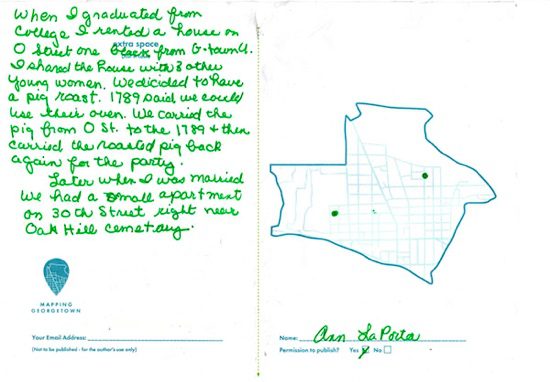 When I graduated from
College I rented a house on
extra space
O Street one block from G-town U.
I shared the house with 3 other
young women. We dicided to have
a pig roast. 1789 said we could
use their oven. We carried the
pig from O St. to the 1789 & then
carried the roasted pig back
again for the party.
Later when I was married
we had a small apartment
on 30th Street right near
Oak Hill Cemetary.
MAPPING
GEORGETOWN
Your Email Address:
(Not to be published - for the author's use only)
Name: Ann LaPorta
Permission to publish? Yes No